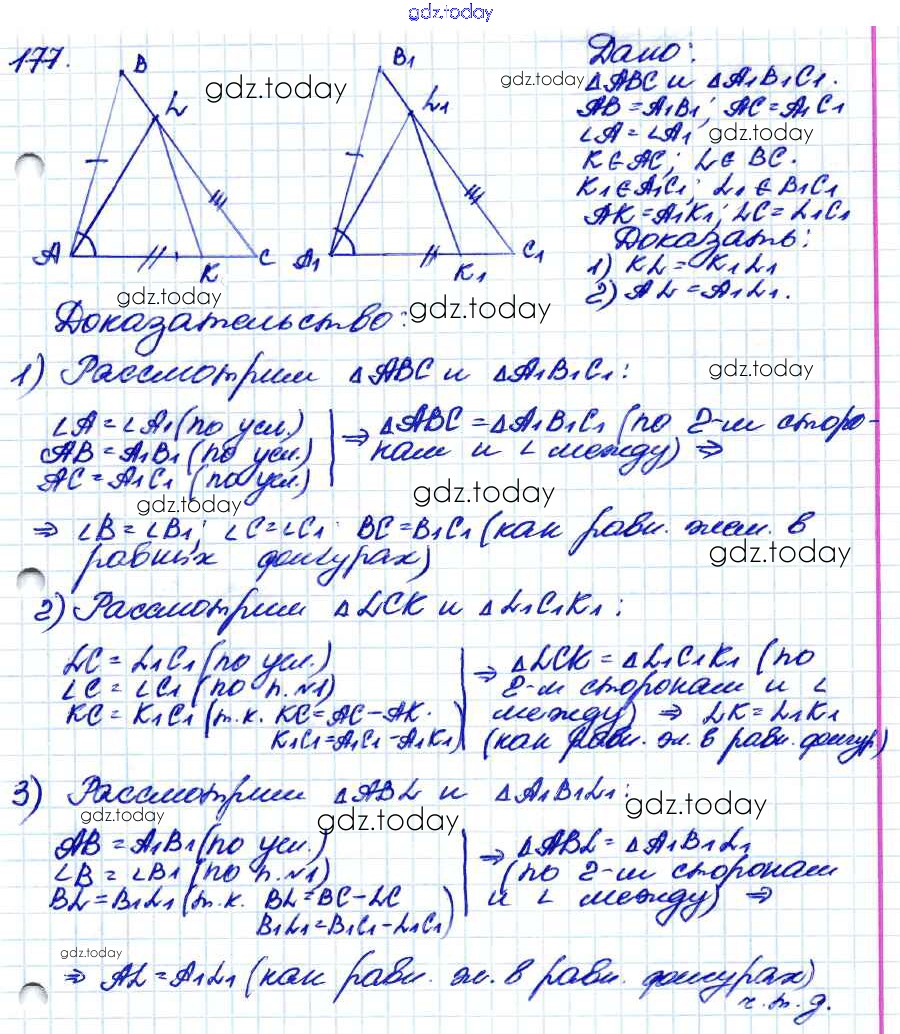 gdz.today
177.
B
L
A
K
C
B1
L1
A1
K1
C1
gdz.today
gdz.today
Дано:
△ABC и △A1B1C1.
AB = A1B1; AC = A1C1
∠A = ∠A1
gdz.today
K ∈ AC; L ∈ BC.
K1 ∈ A1C1; L1 ∈ B1C1
AK = A1K1; LC = L1C1
Доказать:
1) KL = K1L1
2) AL = A1L1.
gdz.today
gdz.today
Доказательство:
1) Рассмотрим △ABC и △A1B1C1:
gdz.today
∠A = ∠A1 (по усл.)
AB = A1B1 (по усл.)
AC = A1C1 (по усл.)
⇒ △ABC = △A1B1C1 (по 2-м сторо-
нам и ∠ между) ⇒
gdz.today
gdz.today
⇒ ∠B = ∠B1; ∠C = ∠C1 BC = B1C1 (как равн. эл. в
равных фигурах)
gdz.today
2) Рассмотрим △LCK и △L1C1K1:
LC = L1C1 (по усл.)
∠C = ∠C1 (по п.№1)
KC = K1C1 (т.к. KC = AC – AK.
K1C1 = A1C1 – A1K1)
⇒ △LCK = △L1C1K1 (по
2-м сторонам и ∠
между) ⇒ LK = L1K1
(как равн. эл. в равн. фигур)
3) Рассмотрим △ABL и △A1B1L1:
gdz.today
gdz.today
gdz.today
AB = A1B1 (по усл.)
∠B = ∠B1 (по п.№1)
BL = B1L1 (т.к. BL = BC – LC
B1L1 = B1C1 – L1C1)
⇒ △ABL = △A1B1L1
(по 2-м сторонам
и ∠ между) ⇒
gdz.today
⇒ AL = A1L1 (как равн. эл. в равн. фигурах)
ч.т.д.